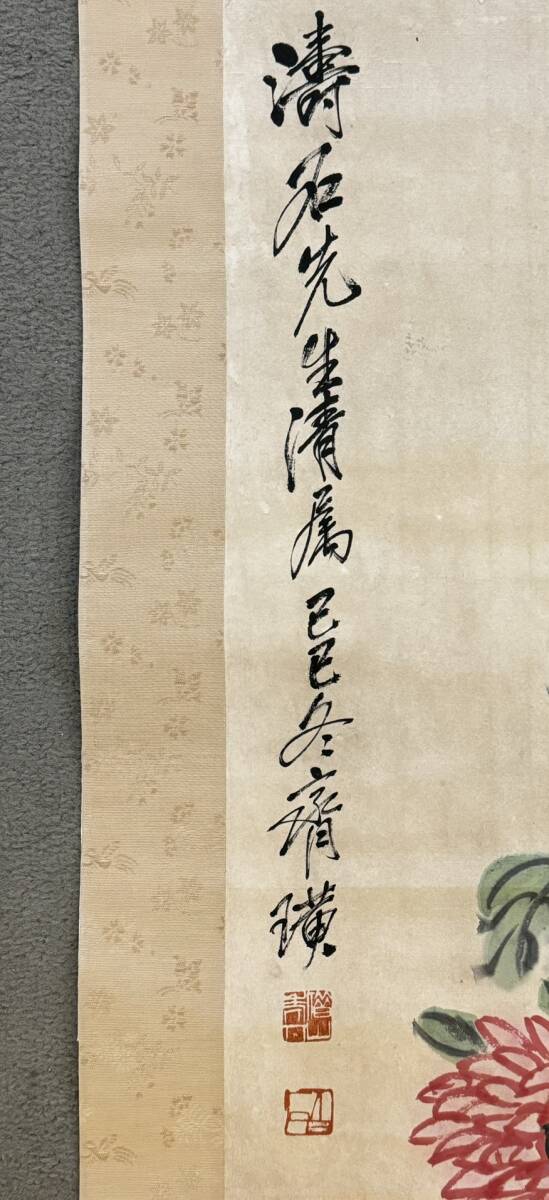 濤石先生清属己巳冬齊璜